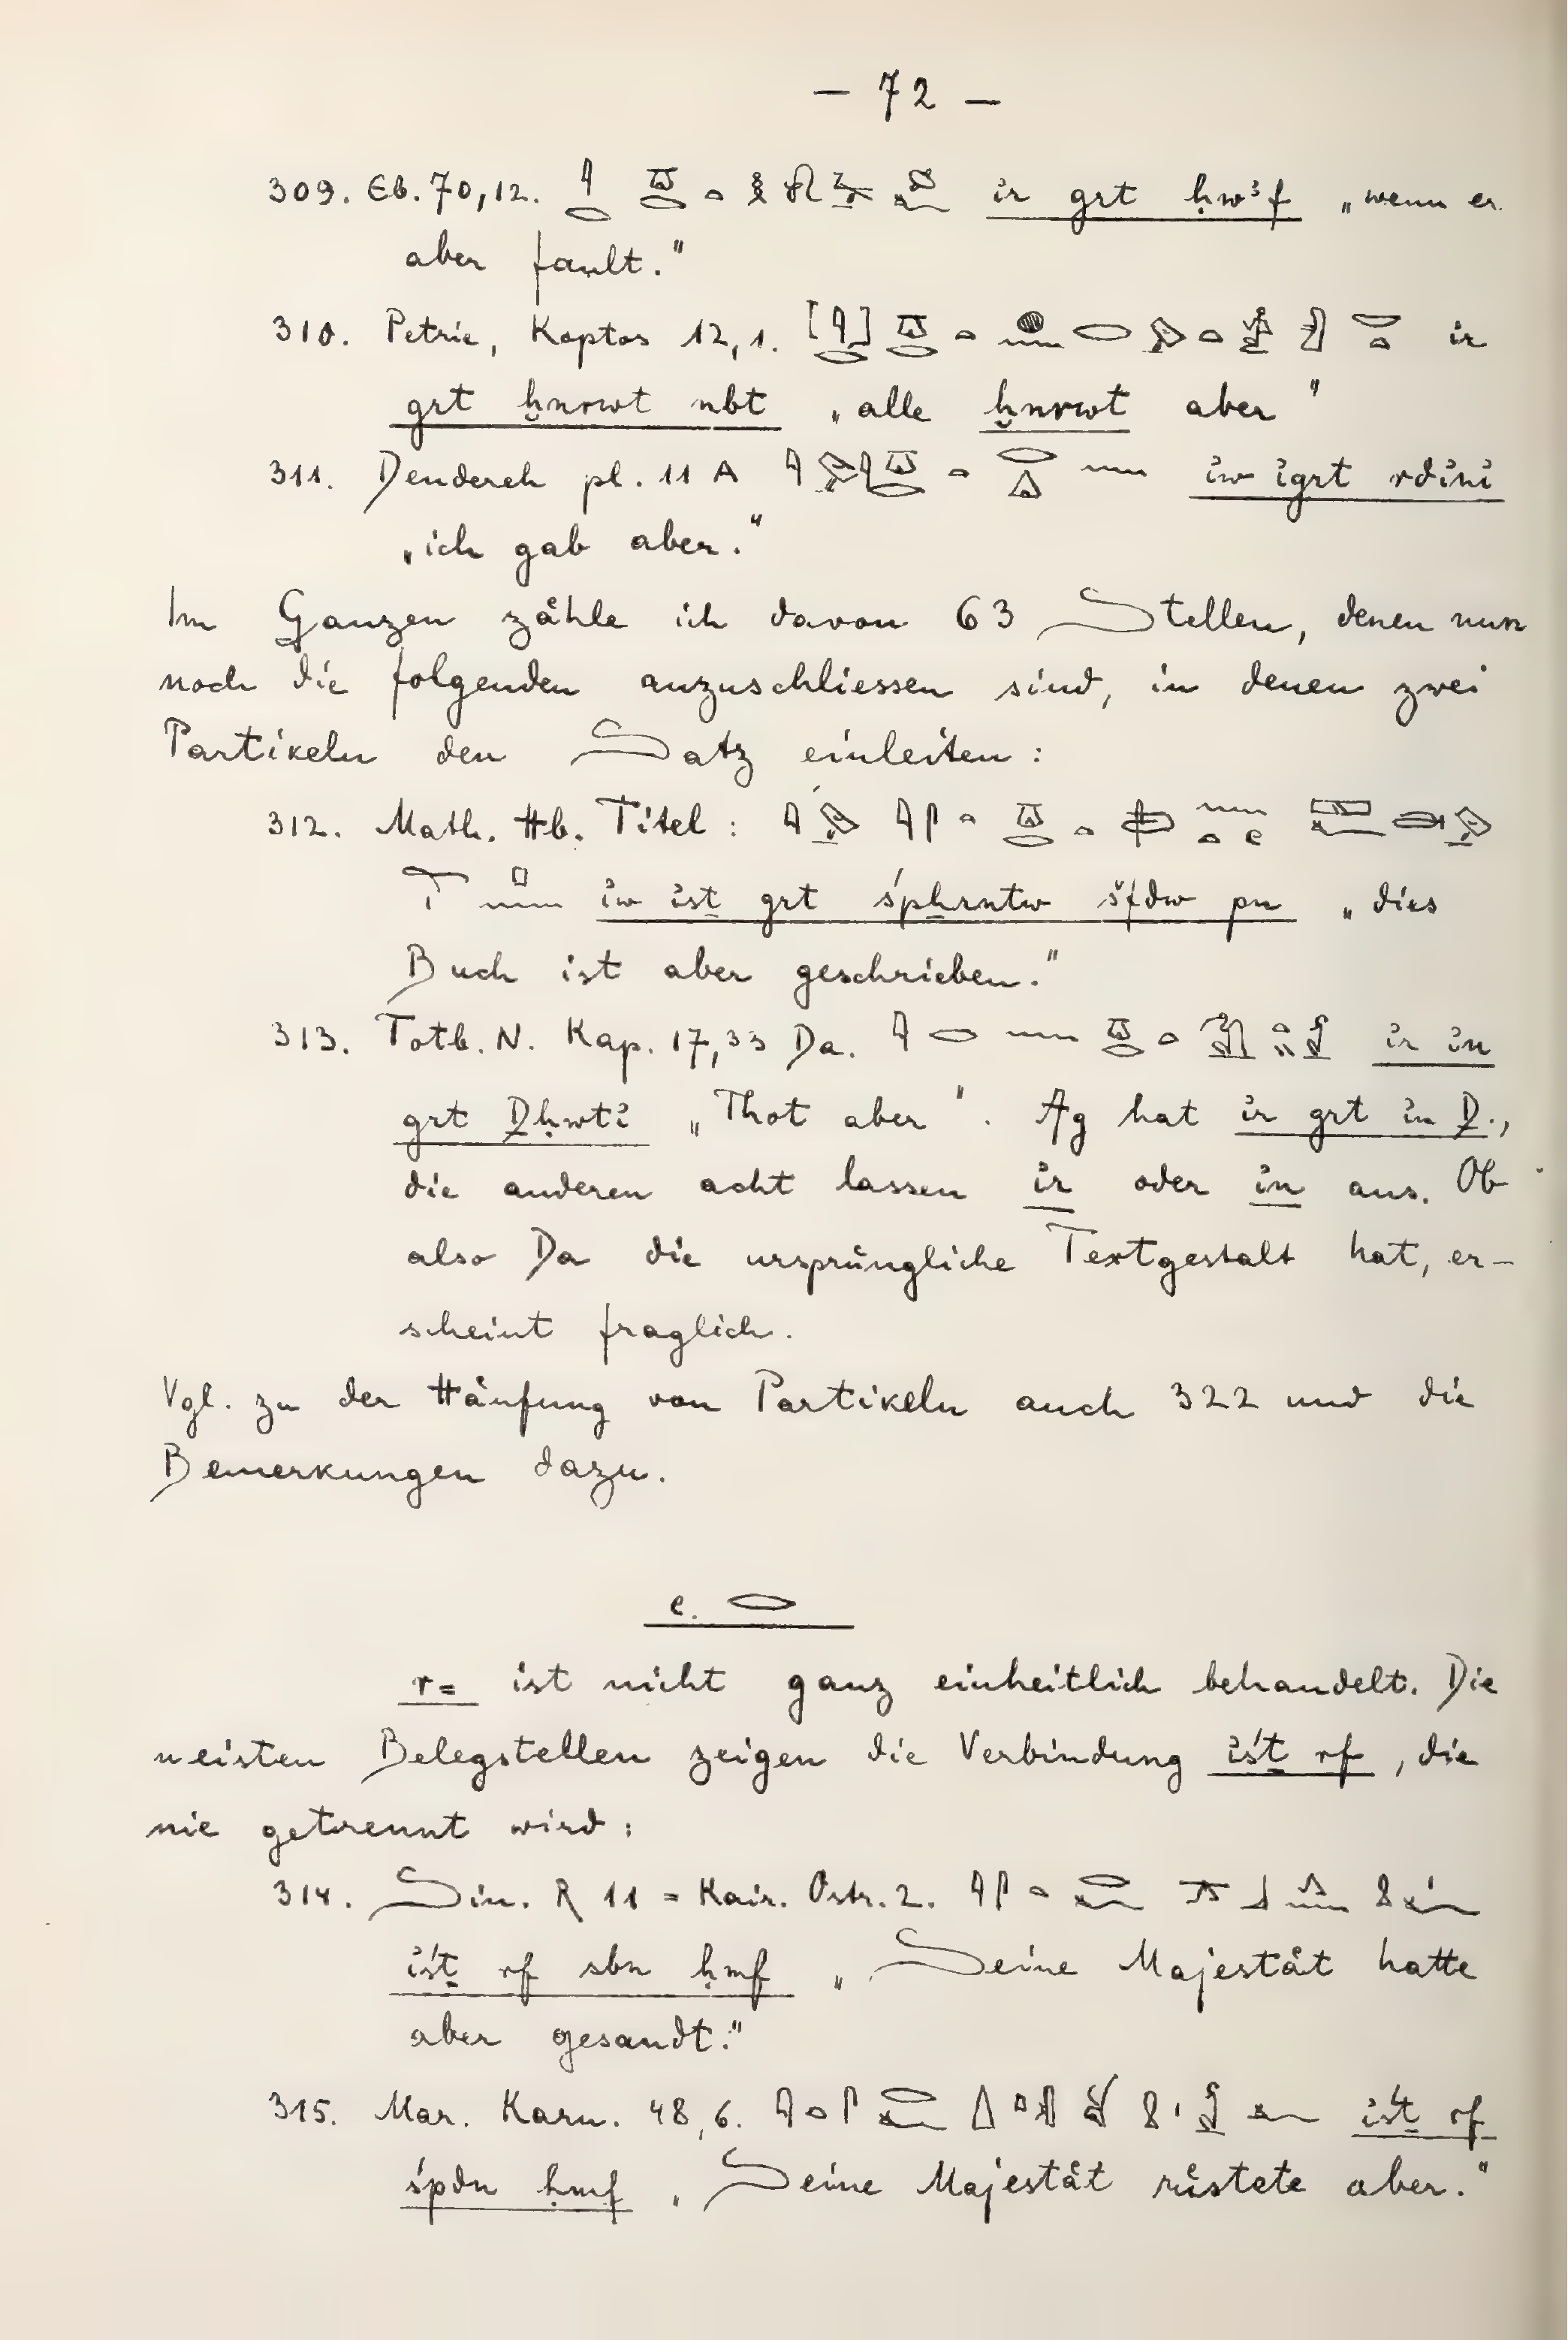 — 72 —
309. Eb. 70,12. ỉr grt ḥwꜣf „wenn er
aber fault."
310. Petrie, Koptos 12,1. ỉr
grt ḫnrwt nbt „alle ḫnrwt aber"
311. Dendereh pl. 11 A ỉw ỉgrt rdỉnỉ
„ich gab aber."
Im Ganzen zähle ich davon 63 Stellen, denen nun
noch die folgenden anzuschliessen sind, in denen zwei
Partikeln den Satz einleiten:
312. Math. Hb. Titel:
ỉw ỉsṯ grt śpẖrntw šfdw pn „dies
Buch ist aber geschrieben."
313. Totb. N. Kap. 17,33 Da. ỉr ỉn
grt Ḏḥwtỉ „Thot aber". Ag hat ỉr grt ỉn Ḏ.,
die anderen acht lassen ỉr oder ỉn aus. Ob
also Da die ursprüngliche Textgestalt hat, er-
scheint fraglich.
Vgl. zu der Häufung von Partikeln auch 322 und die
Bemerkungen dazu.
e. 𓂋
r= ist nicht ganz einheitlich behandelt. Die
meisten Belegstellen zeigen die Verbindung ỉśṯ rf, die
nie getrennt wird:
314. Sin. R 11 = Kair. Ostr. 2.
ỉśṯ rf sbn ḥmf „Seine Majestät hatte
aber gesandt."
315. Mar. Karn. 48,6. ỉśṯ rf
śpdn ḥmf „Seine Majestät rüstete aber."